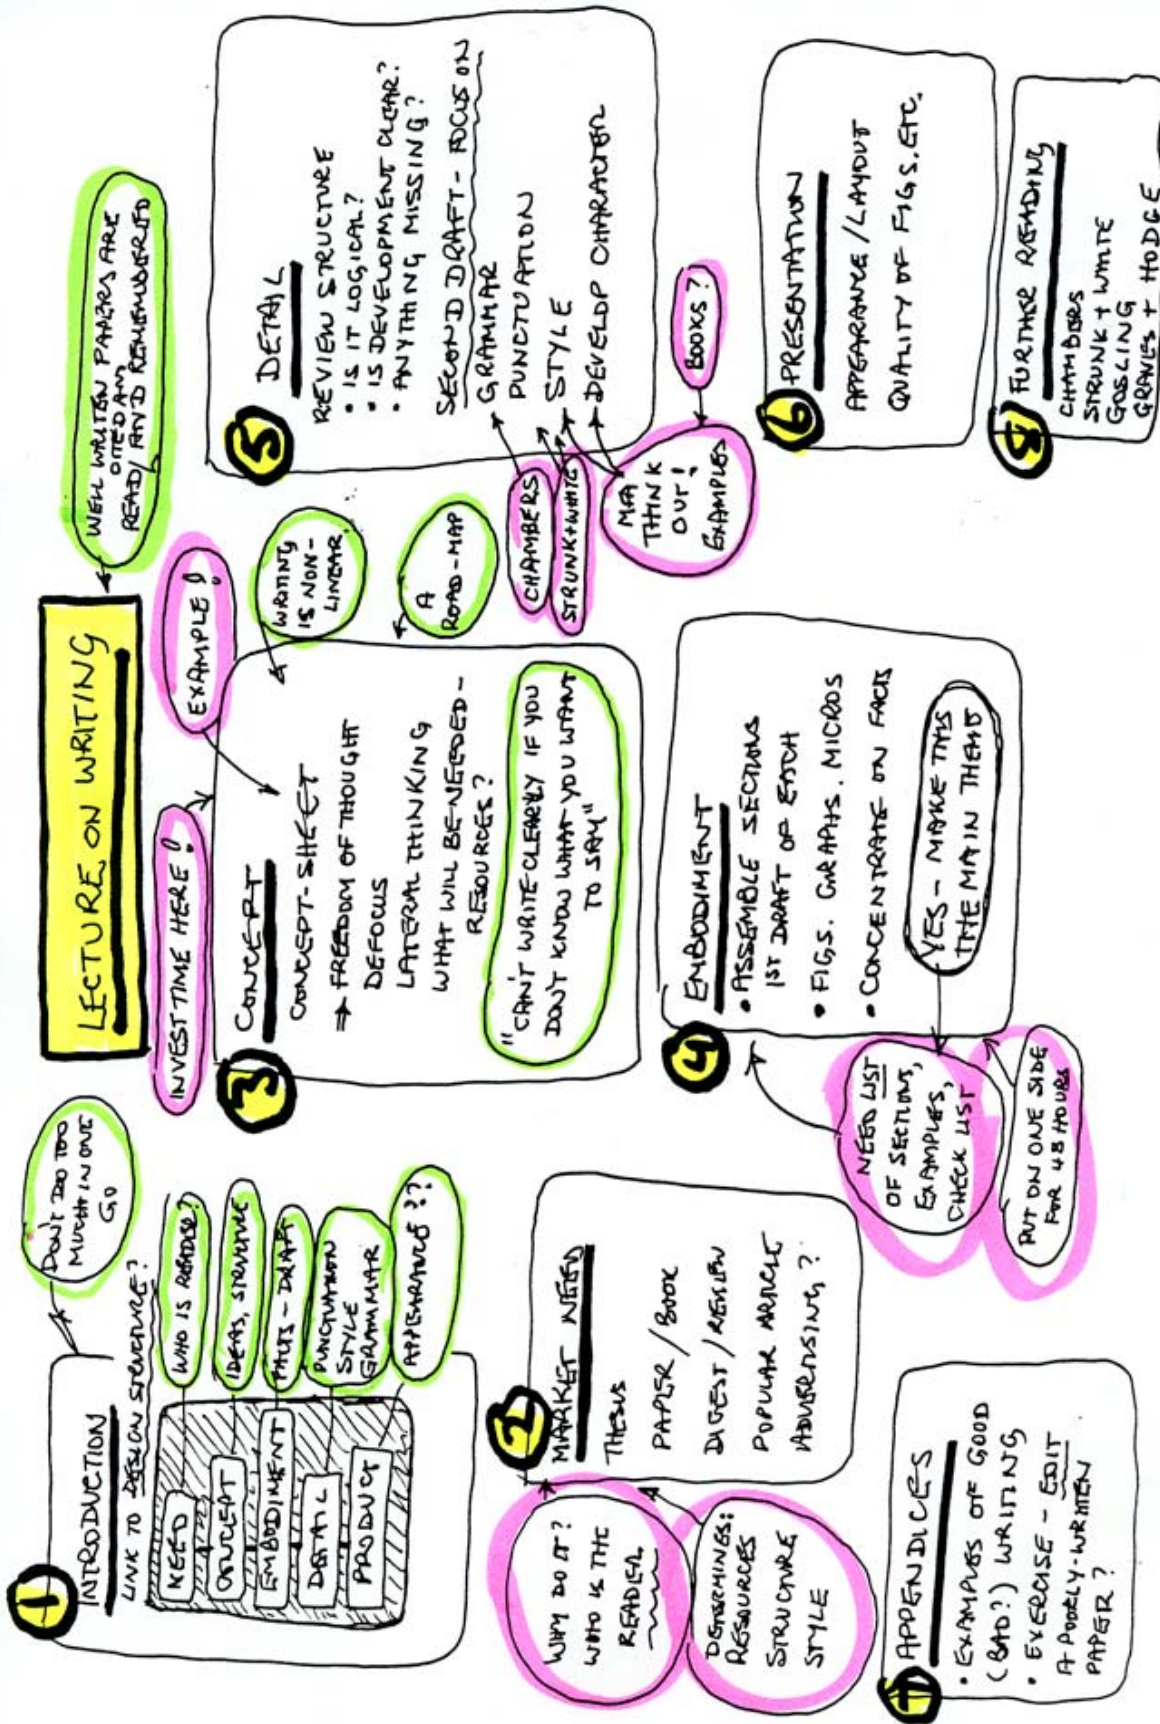 LECTURE ON WRITING
WELL WRITTEN PAPERS ARE
CITED AND
READ / AND REMEMBERED
DON'T DO TOO
MUCH IN ONE
GO
1
INTRODUCTION
LINK TO DESIGN STRUCTURE?
NEED
CONCEPT
EMBODIMENT
DETAIL
PRODUCT
WHO IS READER?
IDEAS, STRUCTURE
FACTS - DRAFT
PUNCTUATION
STYLE
GRAMMAR
APPEARANCE??
2
MARKET NEED
THESIS
PAPER / BOOK
DIGEST / REVIEW
POPULAR ARTICLE
ADVERTISING?
WHY DO IT?
WHO IS THE
READER.
DETERMINES:
RESOURCES
STRUCTURE
STYLE
INVEST TIME HERE!
EXAMPLE!
3
CONCEPT
CONCEPT-SHEET
⇒ FREEDOM OF THOUGHT
DEFOCUS
LATERAL THINKING
WHAT WILL BE NEEDED -
RESOURCES?
"CAN'T WRITE CLEARLY IF YOU
DON'T KNOW WHAT YOU WANT
TO SAY"
WRITING
IS NON-
LINEAR
A
ROAD-MAP
4
EMBODIMENT
• ASSEMBLE SECTIONS
1ST DRAFT OF EACH
• FIGS. GRAPHS. MICROS
• CONCENTRATE ON FACTS
YES - MAKE THIS
THE MAIN THEME
NEED LIST
OF SECTIONS,
EXAMPLES,
CHECK LIST
PUT ON ONE SIDE
FOR 48 HOURS
5
DETAIL
REVIEW STRUCTURE
• IS IT LOGICAL?
• IS DEVELOPMENT CLEAR?
• ANYTHING MISSING?
SECOND DRAFT - FOCUS ON
GRAMMAR
PUNCTUATION
STYLE
DEVELOP CHARACTER
CHAMBERS
STRUNK + WHITE
MFA
THINK
OUT!
EXAMPLES
BOOKS?
6
PRESENTATION
APPEARANCE / LAYOUT
QUALITY OF FIGS. ETC.
7
APPENDICES
• EXAMPLES OF GOOD
(BAD?) WRITING
• EXERCISE - EDIT
A POORLY-WRITTEN
PAPER?
8
FURTHER READING
CHAMBERS
STRUNK + WHITE
GOSLING
GRAVES + HODGE